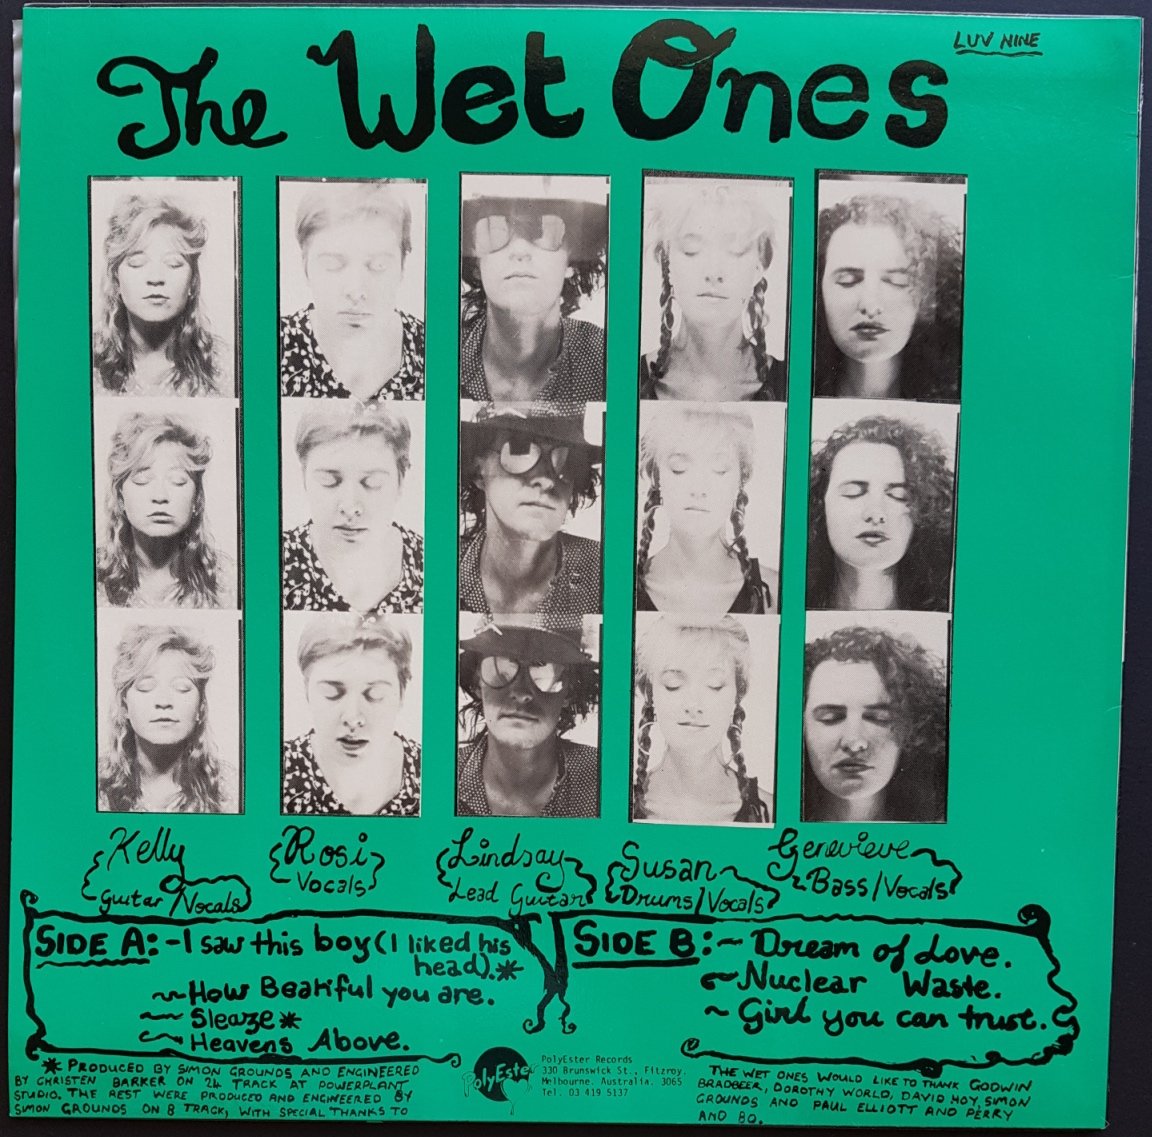 LUV NINE
The Wet Ones
Kelly
Guitar/Vocals
Rosi
Vocals
Lindsay
Lead Guitar
Susan
Drums/Vocals
Genevieve
Bass/Vocals
SIDE A: - I saw this boy (I liked his
head).*
~ How Beatiful you are.
~ Sleaze *
~ Heavens Above.
SIDE B: ~ Dream of Love.
~ Nuclear Waste.
~ Girl you can trust.
* PRODUCED BY SIMON GROUNDS AND ENGINEERED
BY CHRISTEN BARKER ON 24 TRACK AT POWERPLANT
STUDIO. THE REST WERE PRODUCED AND ENGINEERED BY
SIMON GROUNDS ON 8 TRACK, WITH SPECIAL THANKS TO
PolyEster
PolyEster Records
330 Brunswick St., Fitzroy,
Melbourne. Australia. 3065
Tel. 03 419 5137
THE WET ONES WOULD LIKE TO THANK GODWIN
BRADBEER, DOROTHY WORLD, DAVID HOY, SIMON
GROUNDS AND PAUL ELLIOTT AND PERRY
AND BO.